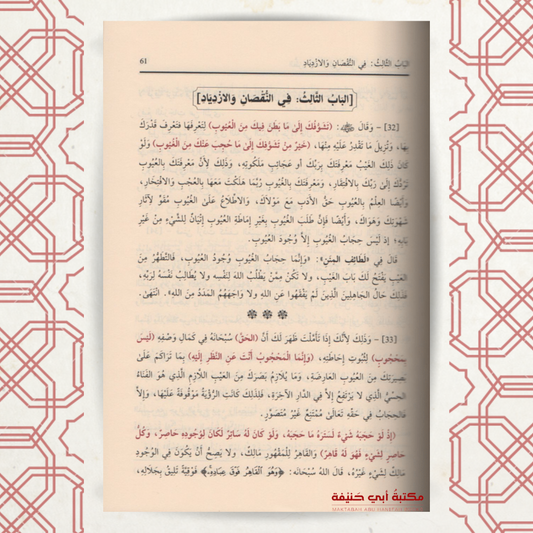 البَابُ الثَّالِثُ: فِي النُّقْصَانِ وَالازْدِيَادِ
61
[البَابُ الثَّالِثُ: فِي النُّقْصَانِ وَالازْدِيَادِ]
[32] – وَقَالَ ﵁: (تَشَوُّفُكَ إِلَىٰ مَا بَطَنَ فِيكَ مِنَ الْعُيُوبِ) لِتَعْرِفَهَا فَتَعْرِفَ قَدْرَكَ
بِهَا، وَتُزِيلَ مَا تَقْدِرُ عَلَيْهِ مِنْهَا، (خَيْرٌ مِنْ تَشَوُّفِكَ إِلَىٰ مَا حُجِبَ عَنْكَ مِنَ الْغُيُوبِ) وَلَوْ
كَانَ ذَلِكَ الغَيْبُ مَعْرِفَتَكَ بِرَبِّكَ أو عَجَائِبِ مَلَكُوتِهِ، وَذَلِكَ لِأَنَّ مَعْرِفَتَكَ بِالعُيُوبِ
تَرُدُّكَ إِلَىٰ رَبِّكَ بِالافْتِقَارِ، وَمَعْرِفَتَكَ بِالغُيُوبِ رُبَّمَا هَلَكْتَ مَعَهَا بِالعُجْبِ وَالافْتِخَارِ،
وَأَيْضًا العِلْمُ بِالعُيُوبِ حَقُّ الأَدَبِ مَعَ مَوْلَاكَ، وَالاطِّلَاعُ عَلَىٰ الغُيُوبِ مُقَوٍّ لآثَارِ
شَهْوَتِكَ وَهَوَاكَ، وَأَيْضًا فَإِنَّ طَلَبَ الغُيُوبِ بِغَيْرِ إِمَاطَةِ العُيُوبِ إِتْيَانٌ لِلشَّيْءِ مِنْ غَيْرِ
بَابِهِ؛ إذ لَيْسَ حِجَابُ الغُيُوبِ إِلاَّ وُجُودَ العُيُوبِ.
قَالَ فِي «لَطَائِفِ المِنَنِ»: «وَإِنَّمَا حِجَابُ الغُيُوبِ وُجُودُ العُيُوبِ، فَالتَّطَهُّرُ مِنَ
العَيْبِ يَفْتَحُ لَكَ بَابَ الغَيْبِ، وَلا تَكُنْ مِمَّنْ يَطْلُبُ اللهَ لِنَفْسِهِ ولا يُطَالِبُ نَفْسَهُ لِرَبِّهِ،
فَذَلِكَ حَالُ الجَاهِلِينَ الَّذِينَ لَمْ يَفْقَهُوا عَنِ اللهِ ولا وَاجَهَهُمُ المَدَدُ مِنَ اللهِ». انْتَهَى.
[33] – وَذَلِكَ لأنَّكَ إِذَا تَأَمَّلْتَ ظَهَرَ لَكَ أَنَّ (الحَقَّ) سُبْحَانَهُ فِي كَمَالِ وَصْفِهِ (لَيْسَ
بِمَحْجُوبٍ) لِثُبُوتِ إِحَاطَتِهِ، (وَإِنَّمَا الْمَحْجُوبُ أَنْتَ عَنِ النَّظَرِ إِلَيْهِ) بِمَا تَرَاكَمَ عَلَىٰ
بَصِيرَتِكَ مِنَ العُيُوبِ العَارِضَةِ، وَمَا يُلَازِمُ بَصَرَكَ مِنَ العَيْبِ اللَّازِمِ الَّذِي هُوَ الفَنَاءُ
الحِسِّيُّ الَّذِي لا يَرْتَفِعُ إِلاَّ فِي الدَّارِ الآخِرَةِ، فَلِذَلِكَ كَانَتِ الرُّؤْيَةُ مَوْقُوفَةً عَلَيْهَا، وَإِلاَّ
فَالحِجَابُ فِي حَقِّهِ تَعَالَىٰ مُمْتَنِعٌ غَيْرُ مُتَصَوَّرٍ.
(إِذْ لَوْ حَجَبَهُ شَيْءٌ لَسَتَرَهُ مَا حَجَبَهُ، وَلَوْ كَانَ لَهُ سَاتِرٌ لَكَانَ لِوُجُودِهِ حَاصِرٌ، وَكُلُّ
حَاصِرٍ لِشَيْءٍ فَهُوَ لَهُ قَاهِرٌ) وَالقَاهِرُ لِلْمَقْهُورِ مَالِكٌ، ولا يَصِحُّ أَنْ يَكُونَ فِي الوُجُودِ
مَالِكٌ لِشَيْءٍ غَيْرُهُ، قَالَ اللهُ سُبْحَانَهُ: ﴿وَهُوَ ٱلْقَاهِرُ فَوْقَ عِبَادِهِۦ﴾ فَوْقِيَّةً تَلِيقُ بِجَلَالِهِ،
مكتبة أبي حنيفة
MAKTABAH ABU HANIFAH